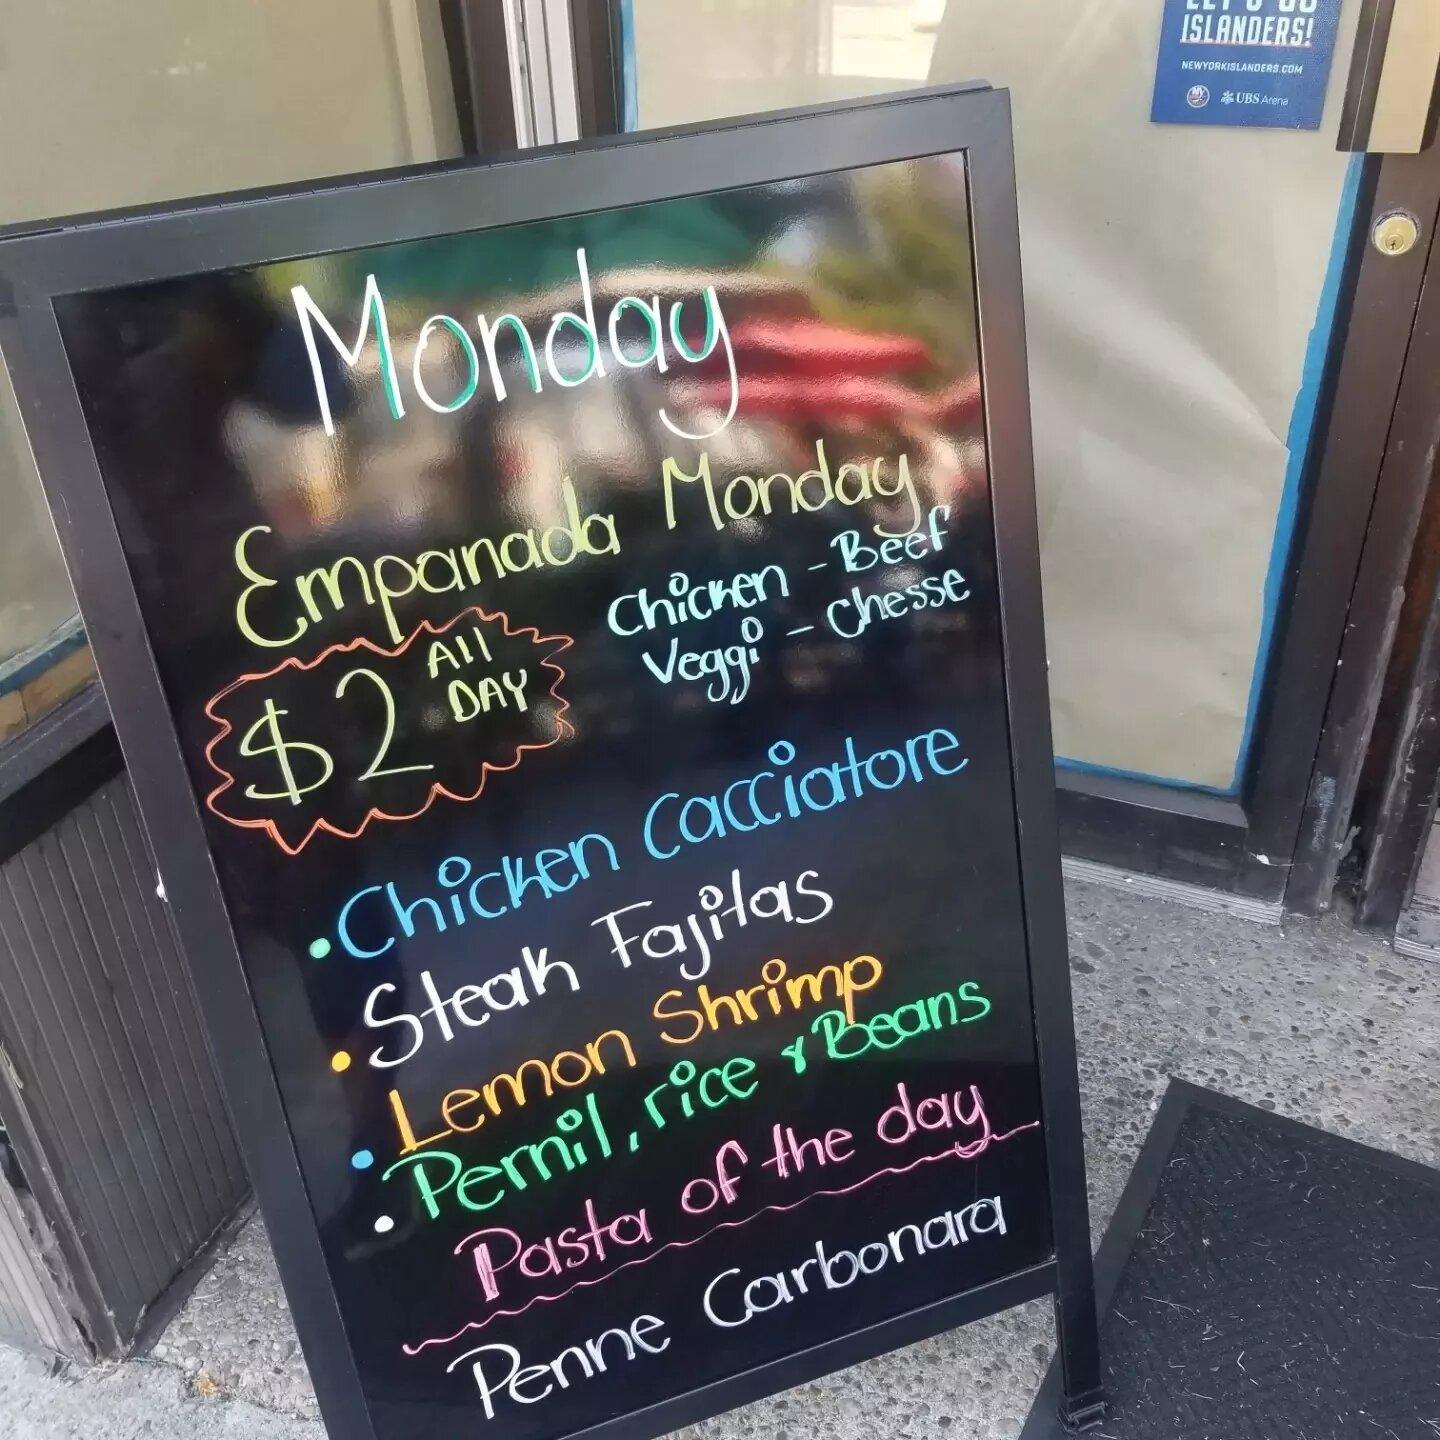 LET'S GO
ISLANDERS!
NEWYORKISLANDERS.COM
NY
UBS Arena
Monday
Empanada Monday
$2 All
DAY
Chicken - Beef
Veggi - Chesse
• Chicken Cacciatore
• Steak Fajitas
• Lemon Shrimp
• Pernil, rice & Beans
Pasta of the day
Penne Carbonara